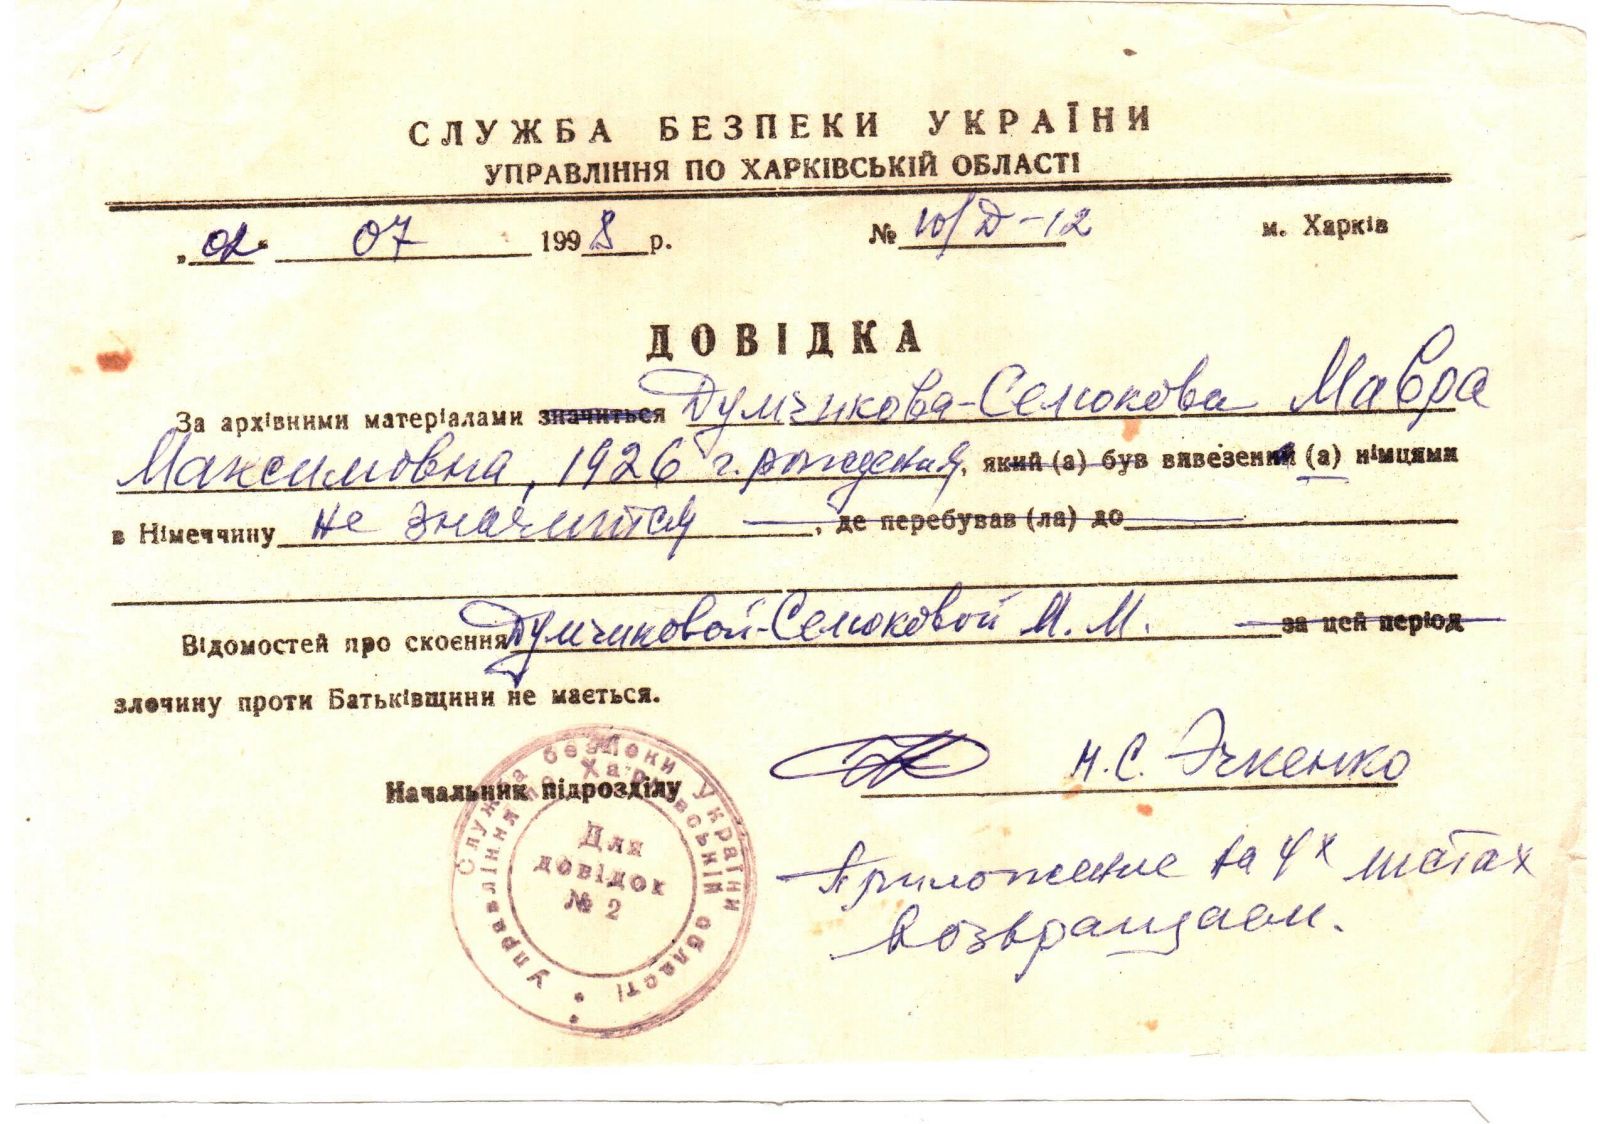 СЛУЖБА БЕЗПЕКИ УКРАЇНИ
УПРАВЛІННЯ ПО ХАРКІВСЬКІЙ ОБЛАСТІ
„02" 07 1998 р. № 10/Д-12 м. Харків
ДОВІДКА
За архівними матеріалами значиться Думчикова-Селюкова Мавра
Максимовна, 1926 г. рождения, який (а) був вивезений (а) німцями
в Німеччину не значится, де перебував (ла) до
Відомостей про скоєння Думчиковой-Селюковой М. М. за цей період
злочину проти Батьківщини не мається.
Начальник підрозділу Н. С.
Служба безпеки України
Управління по Харківській області
Для
довідок
№ 2
Приложение на 4х листах
возвращаем.